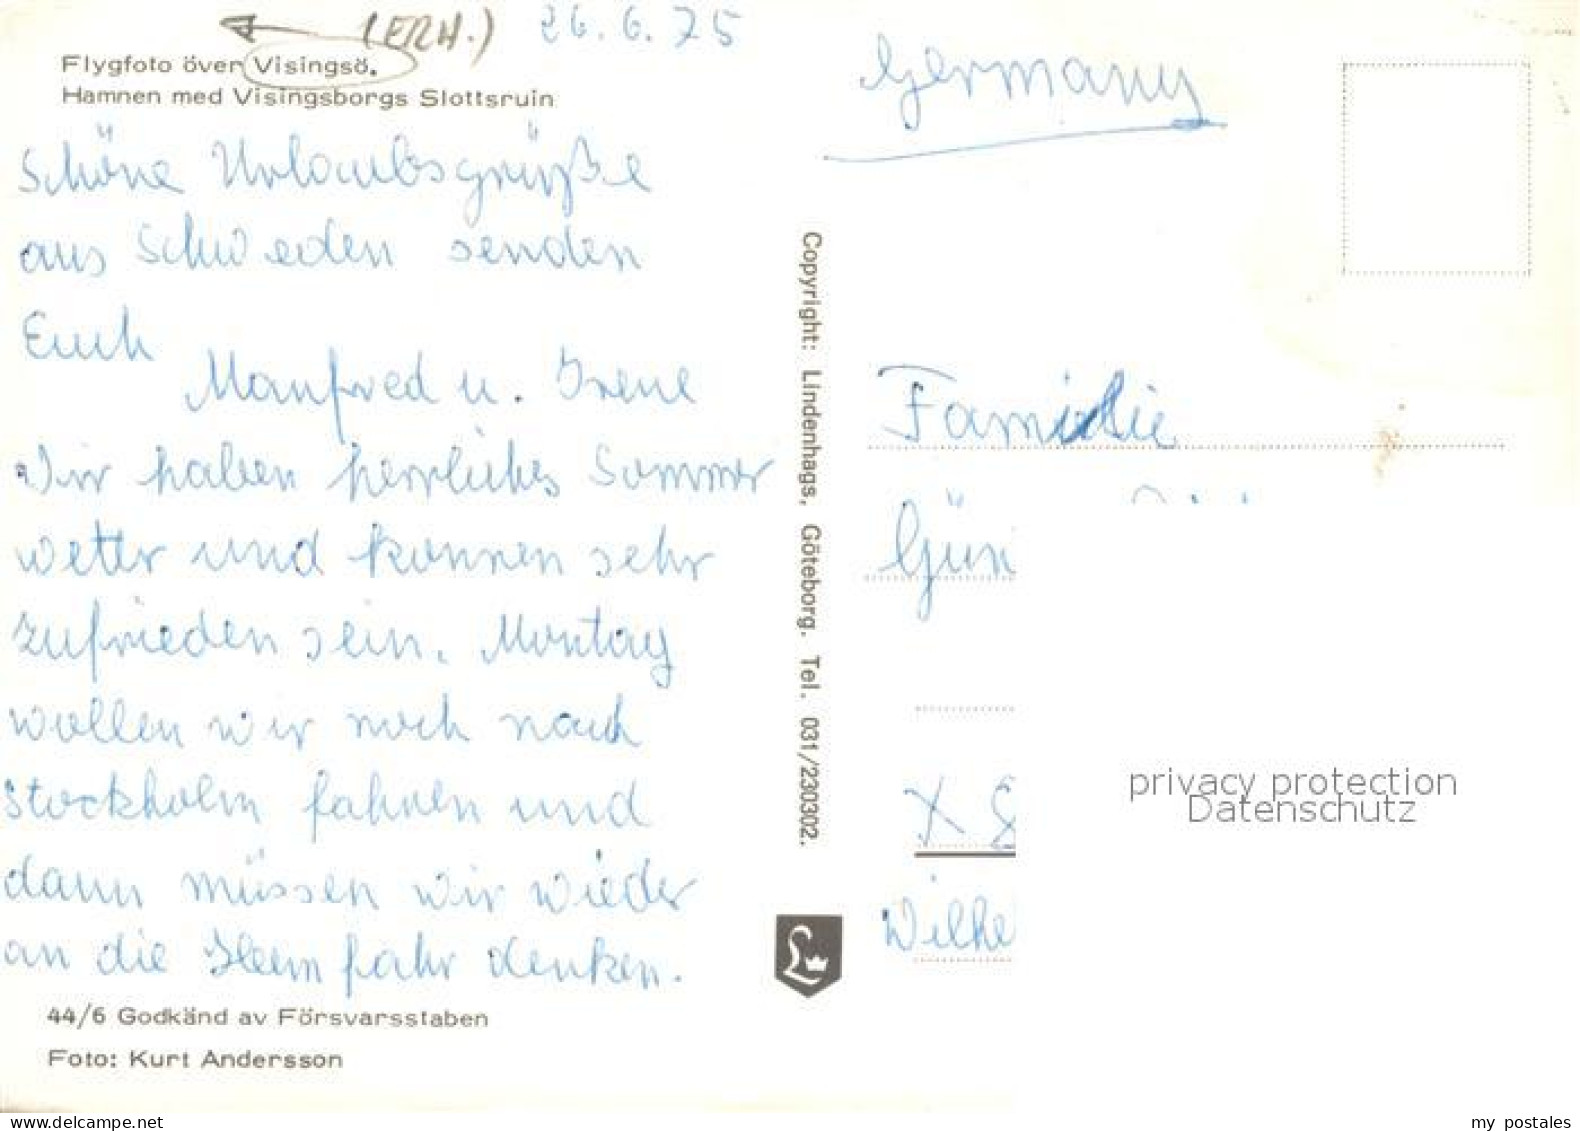 (ERH.) 26.6.75
Flygfoto över Visingsö.
Hamnen med Visingsborgs Slottsruin
Schöne Urlaubsgrüße
aus Schweden senden
Euch
Manfred u. Irene
Wir haben herrliches Sommer
wetter und können sehr
zufrieden sein. Montag
wollen wir noch nach
Stockholm fahren und
dann müssen wir wieder
an die Heimfahr denken.
44/6 Godkänd av Försvarsstaben
Foto: Kurt Andersson
Copyright: Lindenhags, Göteborg. Tel. 031/230302.
L
Germany
Familie
Gün
X 8
Wilhe
privacy protection
Datenschutz
my postales